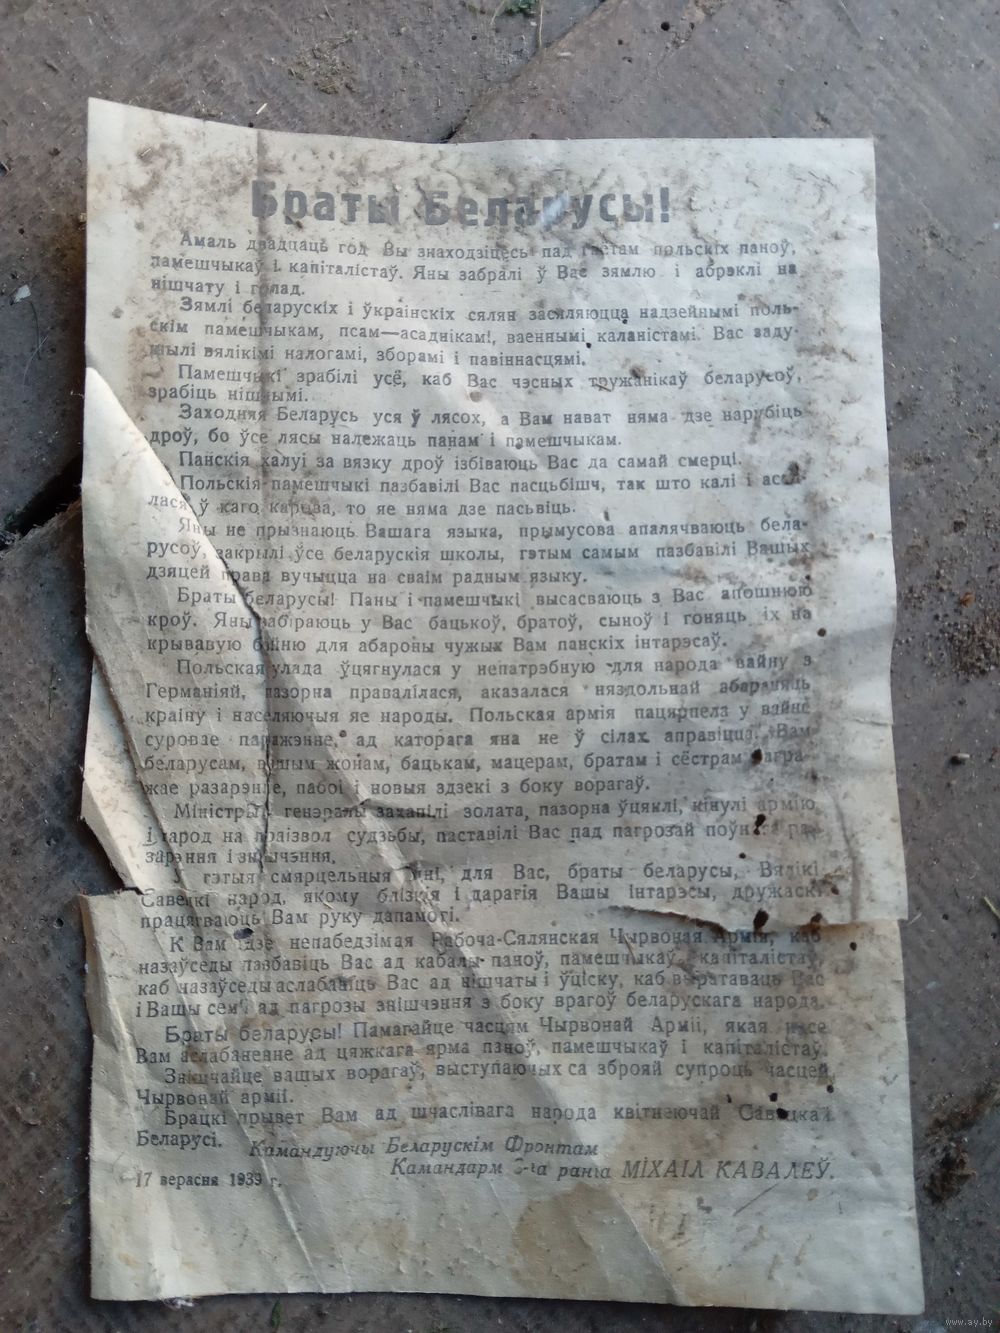 Браты Беларусы!
Амаль двадцаць год Вы знаходзіцесь пад гнётам польскіх паноў,
памешчыкаў і капіталістаў. Яны забралі ў Вас зямлю і абрэклі на
нішчату і голад.
Зямлі беларускіх і ўкраінскіх сялян засяляюцца надзейнымі поль-
скім памешчыкам, псам—асаднікамі, ваеннымі каланістамі. Вас заду-
шылі вялікімі налогамі, зборамі і павіннасцямі.
Памешчыкі зрабілі усё, каб Вас чэсных тружанікаў беларусоў,
зрабіць нішчымі.
Заходняя Беларусь уся ў лясох, а Вам нават няма дзе нарубіць
дроў, бо ўсе лясы належаць панам і памешчыкам.
Панскія халуі за вязку дроў ізбіваюць Вас да самай смерці.
Польскія памешчыкі пазбавілі Вас пасцьбішч, так што калі і аста-
лася ў каго карова, то яе няма дзе пасьвіць.
Яны не прызнаюць Вашага языка, прымусова апалячваюць бела-
русоў, закрылі ўсе беларускія школы, гэтым самым пазбавілі Вашых
дзяцей права вучыцца на сваім радным языку.
Браты беларусы! Паны і памешчыкі высасваюць з Вас апошнюю
кроў. Яны забіраюць у Вас бацькоў, братоў, сыноў і гоняць іх на
крывавую бойню для абароны чужых Вам панскіх інтарэсаў.
Польская улада ўцягнулася у непатрэбную для народа вайну з
Германіяй, пазорна правалілася, аказалася няздольнай абараняць
краіну і населяючыя яе народы. Польская армія пацярпела у вайне
суровае паражэнне, ад каторага яна не ў сілах аправіцца. Вам
беларусам, вашым жонам, бацькам, мацерам, братам і сёстрам пагра-
жае разарэнне, пабоі і новыя здзекі з боку ворагаў.
Міністры і генэралы захапілі золата, пазорна ўцяклі, кінулі армію
і народ на праізвол судзьбы, паставілі Вас пад пагрозай поўнага ра-
зарэння і знішчэння.
У гэтыя смярцельныя дні, для Вас, браты беларусы, Вялікі
Савецкі народ, якому блізкія і дарагія Вашы інтарэсы, дружаскі
працягваюць Вам руку дапамогі.
К Вам ідзе непабедзімая Рабоча-Сялянская Чырвоная Армія, каб
назаўседы пазбавіць Вас ад кабалы паноў, памешчыкаў, капіталістаў,
каб назаўседы аслабаніць Вас ад нішчаты і ўціску, каб выратаваць Вас
і Вашы сем'і ад пагрозы знішчэння з боку врагоў беларускага народа.
Браты беларусы! Памагайце часцям Чырвонай Арміі, якая нясе
Вам аслабаненне ад цяжкага ярма паноў, памешчыкаў і капіталістаў.
Знішчайце вашых ворагаў, выступаючых са зброяй супроць часцей
Чырвонай арміі.
Брацкі прывет Вам ад шчаслівага народа квітнеючай Савецкай
Беларусі.
Камандуючы Беларускім Фронтам
Камандарм 2-га ранга МІХАІЛ КАВАЛЕЎ.
17 верасня 1939 г.
www.ay.by